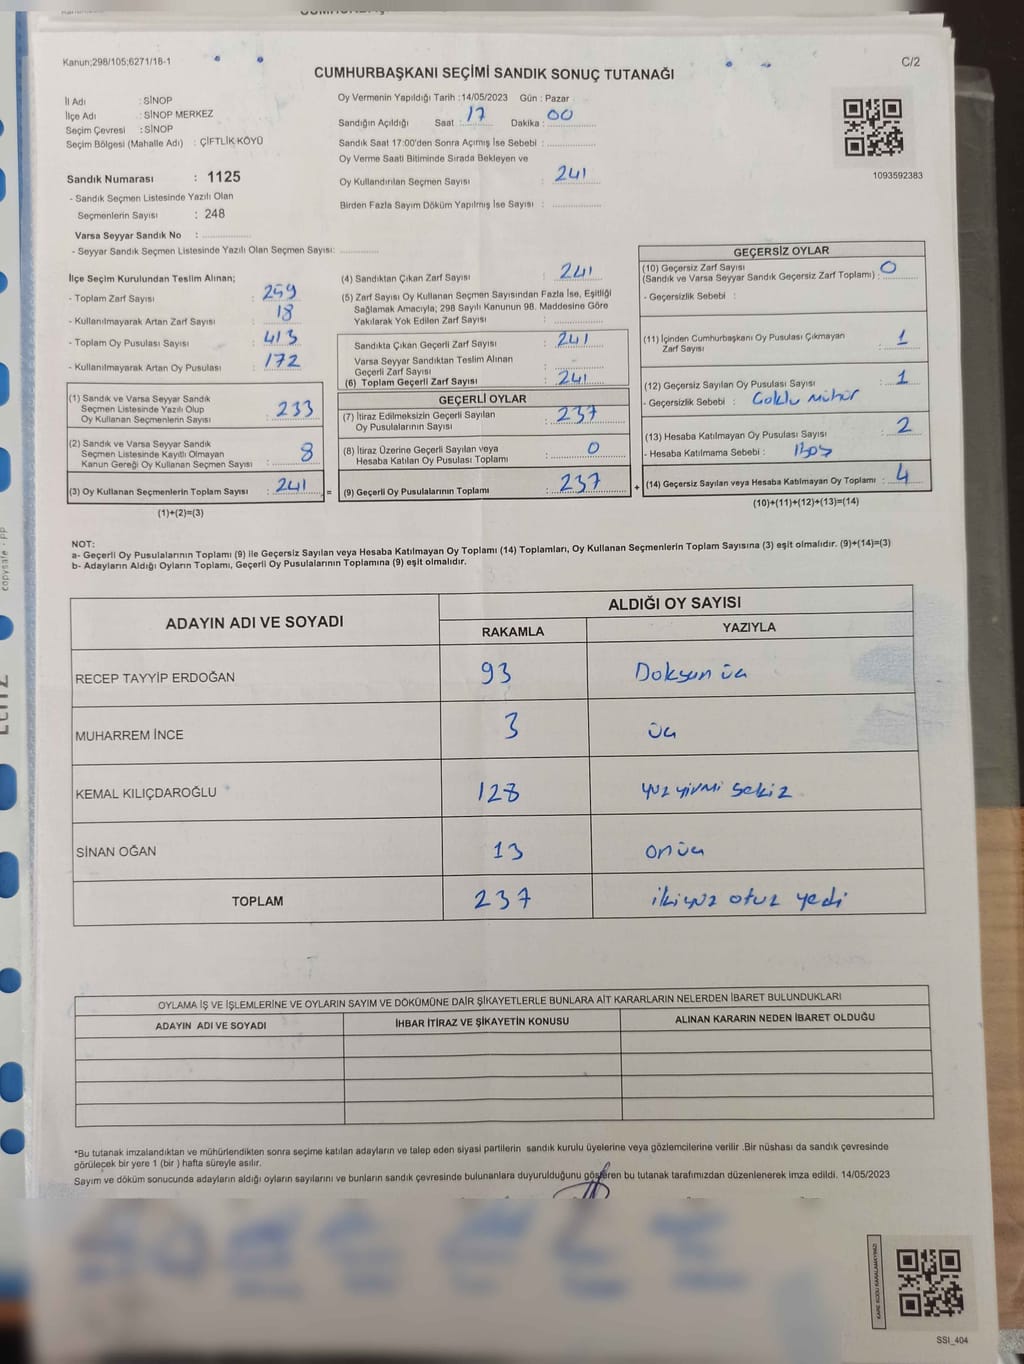 Kanun;298/105;6271/18-1
C/2
CUMHURBAŞKANI SEÇİMİ SANDIK SONUÇ TUTANAĞI
İl Adı : SİNOP
İlçe Adı : SİNOP MERKEZ
Seçim Çevresi : SİNOP
Seçim Bölgesi (Mahalle Adı) : ÇİFTLİK KÖYÜ
Sandık Numarası : 1125
- Sandık Seçmen Listesinde Yazılı Olan
Seçmenlerin Sayısı : 248
Varsa Seyyar Sandık No :
- Seyyar Sandık Seçmen Listesinde Yazılı Olan Seçmen Sayısı:
Oy Vermenin Yapıldığı Tarih : 14/05/2023 Gün : Pazar
Sandığın Açıldığı Saat : 17 Dakika : 00
Sandık Saat 17:00'den Sonra Açmış İse Sebebi :
Oy Verme Saati Bitiminde Sırada Bekleyen ve
Oy Kullandırılan Seçmen Sayısı : 241
Birden Fazla Sayım Döküm Yapılmış İse Sayısı :
1093592383
İlçe Seçim Kurulundan Teslim Alınan;
- Toplam Zarf Sayısı : 259
- Kullanılmayarak Artan Zarf Sayısı : 18
- Toplam Oy Pusulası Sayısı : 413
- Kullanılmayarak Artan Oy Pusulası : 172
(1) Sandık ve Varsa Seyyar Sandık
Seçmen Listesinde Yazılı Olup
Oy Kullanan Seçmenlerin Sayısı : 233
(2) Sandık ve Varsa Seyyar Sandık
Seçmen Listesinde Kayıtlı Olmayan
Kanun Gereği Oy Kullanan Seçmen Sayısı : 8
(3) Oy Kullanan Seçmenlerin Toplam Sayısı : 241 =
(1)+(2)=(3)
(4) Sandıktan Çıkan Zarf Sayısı : 241
(5) Zarf Sayısı Oy Kullanan Seçmen Sayısından Fazla İse, Eşitliği
Sağlamak Amacıyla; 298 Sayılı Kanunun 98. Maddesine Göre
Yakılarak Yok Edilen Zarf Sayısı :
Sandıkta Çıkan Geçerli Zarf Sayısı : 241
Varsa Seyyar Sandıktan Teslim Alınan
Geçerli Zarf Sayısı :
(6) Toplam Geçerli Zarf Sayısı : 241
GEÇERLİ OYLAR
(7) İtiraz Edilmeksizin Geçerli Sayılan
Oy Pusulalarının Sayısı : 237
(8) İtiraz Üzerine Geçerli Sayılan veya
Hesaba Katılan Oy Pusulası Toplamı : 0
(9) Geçerli Oy Pusulalarının Toplamı : 237 +
GEÇERSİZ OYLAR
(10) Geçersiz Zarf Sayısı
(Sandık ve Varsa Seyyar Sandık Geçersiz Zarf Toplamı) : 0
- Geçersizlik Sebebi :
(11) İçinden Cumhurbaşkanı Oy Pusulası Çıkmayan
Zarf Sayısı : 1
(12) Geçersiz Sayılan Oy Pusulası Sayısı : 1
- Geçersizlik Sebebi : Çoklu Mühür
(13) Hesaba Katılmayan Oy Pusulası Sayısı : 2
- Hesaba Katılmama Sebebi : Boş
(14) Geçersiz Sayılan veya Hesaba Katılmayan Oy Toplamı : 4
(10)+(11)+(12)+(13)=(14)
NOT:
a- Geçerli Oy Pusulalarının Toplamı (9) ile Geçersiz Sayılan veya Hesaba Katılmayan Oy Toplamı (14) Toplamları, Oy Kullanan Seçmenlerin Toplam Sayısına (3) eşit olmalıdır. (9)+(14)=(3)
b- Adayların Aldığı Oyların Toplamı, Geçerli Oy Pusulalarının Toplamına (9) eşit olmalıdır.
ADAYIN ADI VE SOYADI
ALDIĞI OY SAYISI
RAKAMLA YAZIYLA
RECEP TAYYİP ERDOĞAN 93 Doksan üç
MUHARREM İNCE 3 üç
KEMAL KILIÇDAROĞLU 128 yüz yirmi sekiz
SİNAN OĞAN 13 onüç
TOPLAM 237 ikiyüz otuz yedi
OYLAMA İŞ VE İŞLEMLERİNE VE OYLARIN SAYIM VE DÖKÜMÜNE DAİR ŞİKAYETLERLE BUNLARA AİT KARARLARIN NELERDEN İBARET BULUNDUKLARI
ADAYIN ADI VE SOYADI İHBAR İTİRAZ VE ŞİKAYETİN KONUSU ALINAN KARARIN NEDEN İBARET OLDUĞU
*Bu tutanak imzalandıktan ve mühürlendikten sonra seçime katılan adayların ve talep eden siyasi partilerin sandık kurulu üyelerine veya gözlemcilerine verilir .Bir nüshası da sandık çevresinde
görülecek bir yere 1 (bir ) hafta süreyle asılır.
Sayım ve döküm sonucunda adayların aldığı oyların sayılarını ve bunların sandık çevresinde bulunanlara duyurulduğunu gösteren bu tutanak tarafımızdan düzenlenerek imza edildi. 14/05/2023
KARE KODU KARALAMAYINIZ!
SSI_404